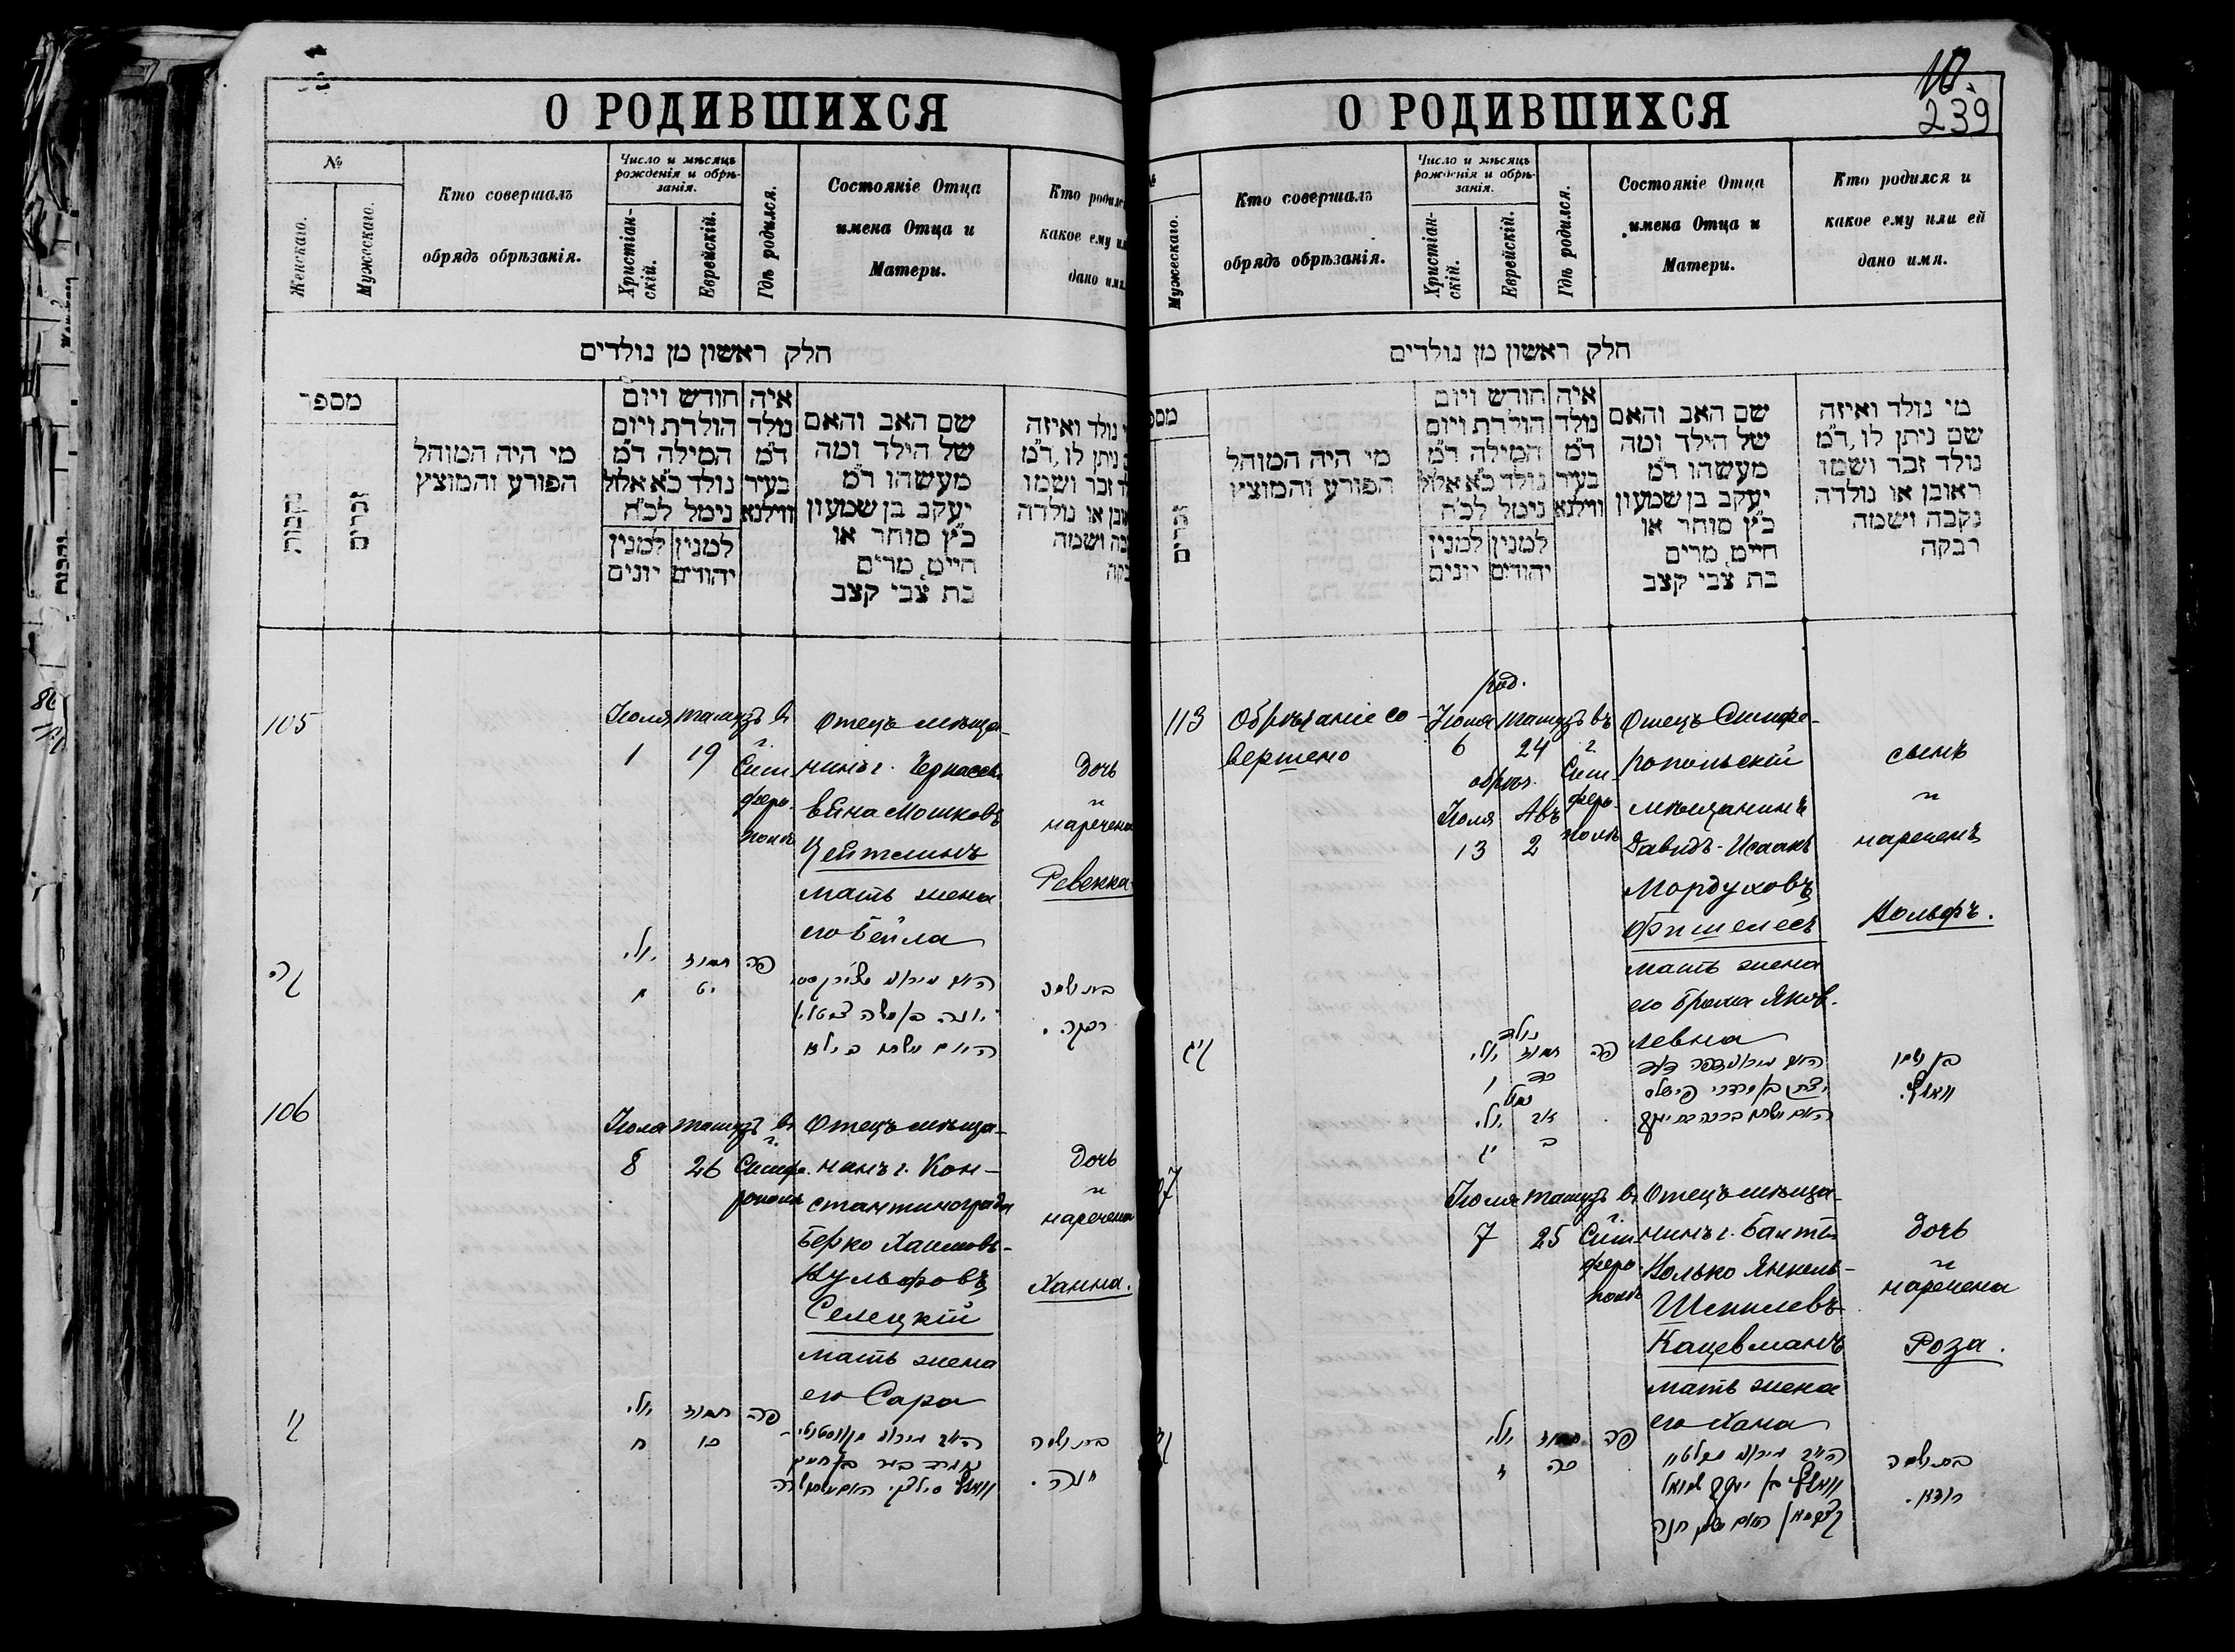 О РОДИВШИХСЯ
№
Женскаго.
Мужескаго.
Кто совершалъ
обрядъ обрѣзанія.
Число и мѣсяцъ
рожденія и обрѣ-
занія.
Христіан-
скій.
Еврейскій.
Гдѣ родился.
Состояніе Отца
имена Отца и
Матери.
Кто родилс
какое ему ил
дано имя.
חלק ראשון מן נולדים
מספר
נקבות
זכרים
מי היה המוהל
הפורע והמוצץ
חודש ויום
הולדת ויום
המילה ד״מ
נולד כ״א אלול
נימל לכ״ח
למנין למנין
יהודים יונים
איה
נולד
ד״מ
בעיר
ווילנא
שם האב והאם
של הילד ומה
מעשהו ד״מ
יעקב בן שמעון
כ״ץ סוחר או
חייט, מרים
בת צבי קצב
נולד ואיזה
ניתן לו, ד״מ
זכר ושמו
או נולדה
ושמה
105
Іюля
1
тамузъ
19
въ
г.
Сим
феро-
полѣ
Отецъ мѣща-
нинъ г. Черкассы
Мошковъ
Цейтлинъ
мать жена
его Бейла
Дочь
наречена
Ревекка
יולי
תמוז
יט
פה
בת ושמה
רבקה.
106
Іюля
8
тамузъ
26
въ
г.
Симфе-
рополѣ
Отецъ мѣща-
нинъ г. Кон-
стантинограда
Берко Хаимовъ-
Вульфовъ
Селецкій
мать жена
его Сара
Дочь
наречена
Ханна.
יולי
ח
תמוז
כו
פה
בת ושמה
חנה.
239
О РОДИВШИХСЯ
Мужескаго.
Кто совершалъ
обрядъ обрѣзанія.
Число и мѣсяцъ
рожденія и обрѣ-
занія.
Христіан-
скій.
Еврейскій.
Гдѣ родился.
Состояніе Отца
имена Отца и
Матери.
Кто родился и
какое ему или ей
дано имя.
חלק ראשון מן נולדים
זכרים
מי היה המוהל
הפורע והמוצץ
חודש ויום
הולדת ויום
המילה ד״מ
נולד כ״א אלול
נימל לכ״ח
למנין למנין
יהודים יונים
איה
נולד
ד״מ
בעיר
ווילנא
שם האב והאם
של הילד ומה
מעשהו ד״מ
יעקב בן שמעון
כ״ץ סוחר או
חייט, מרים
בת צבי קצב
מי נולד ואיזה
שם ניתן לו, ד״מ
נולד זכר ושמו
ראובן או נולדה
נקבה ושמה
רבקה
113
Обрѣзаніе со-
вершено
род.
Іюля
6
тамузъ
24
обрѣз.
Іюля
13
Авъ
2
въ
г.
Сим-
феро-
полѣ
Отецъ Симфе-
ропольскій
мѣщанинъ
Давидъ-Исаакъ
Мордуховъ
Фишелесъ
мать жена
его Яков-
левна
сынъ
нареченъ
Вольфъ.
נולד
יולי
ו
תמוז
כד
נמול
יולי
יג
אב
ב
פה
בן ושמו
וואלף.
Іюля
7
тамузъ
25
въ
г.
Сим-
феро-
полѣ
Отецъ мѣща-
нинъ г. Балты
Волько Янкель-
Шмилевъ
Кацевманъ
мать жена
его Хана
дочь
наречена
Роза.
יולי
ז
תמוז
כה
פה
בת ושמה
רוזא.